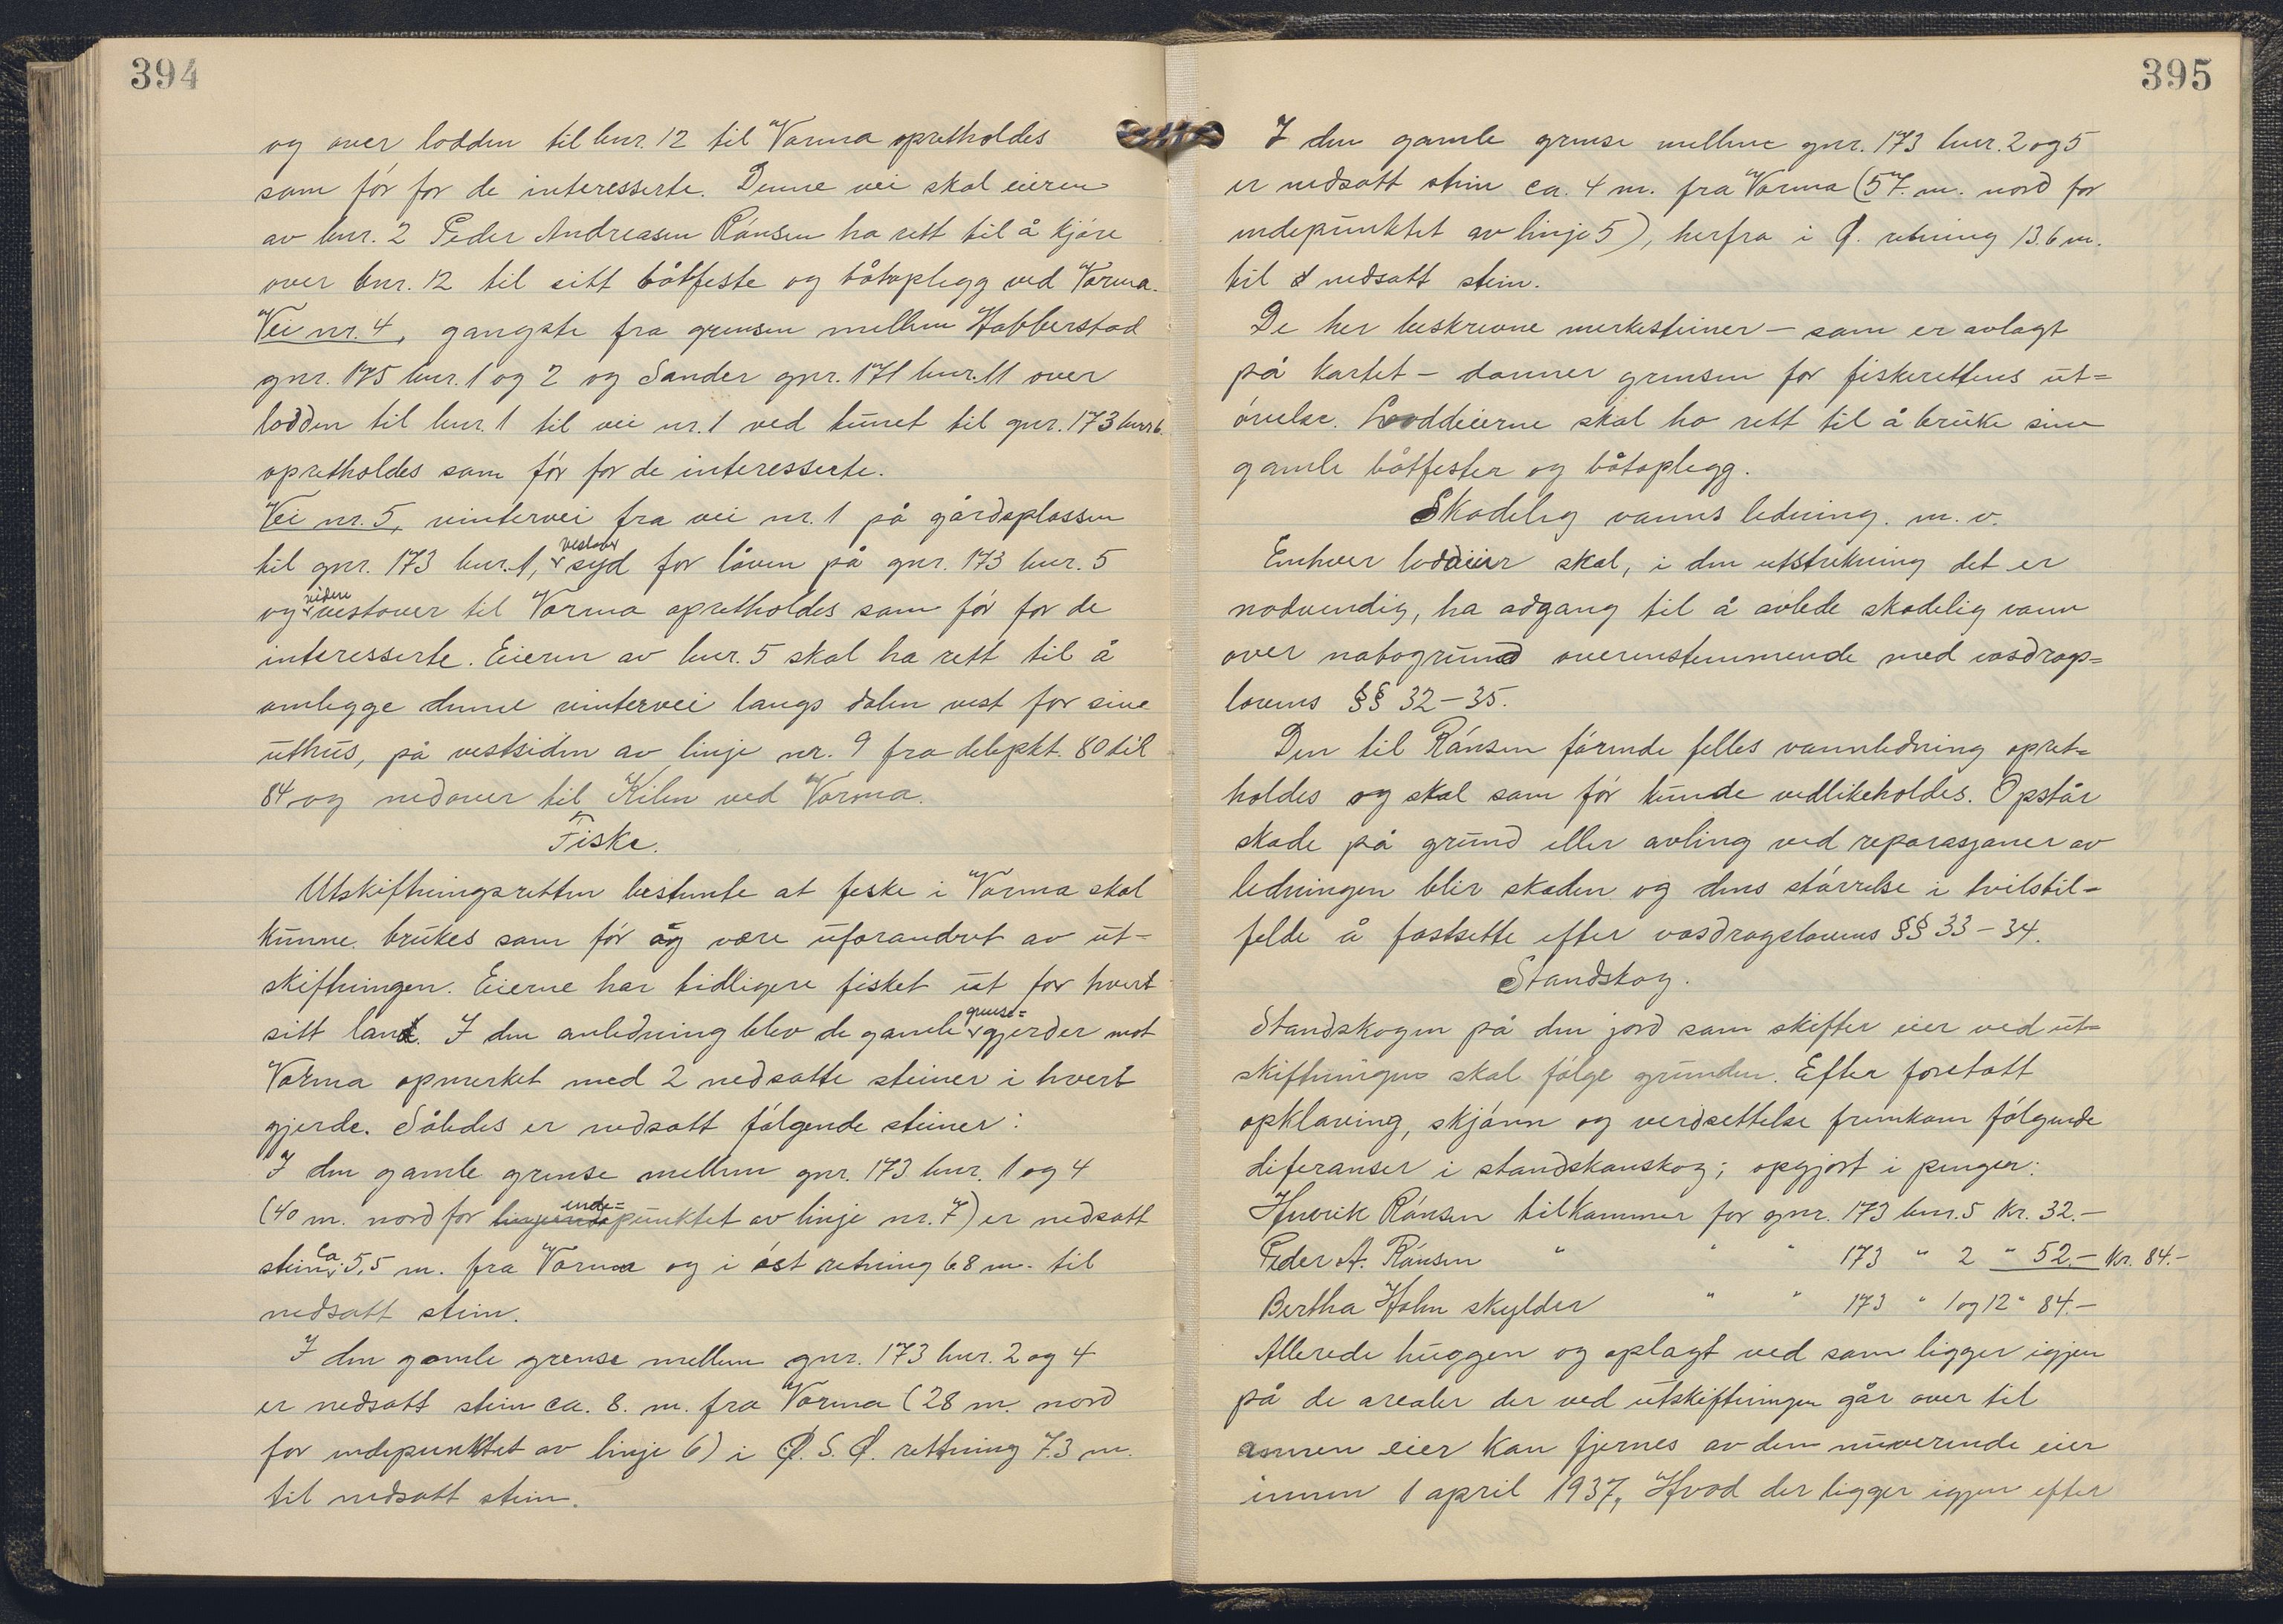 394
og over lodden til bnr. 12 til Vorma opretholdes
som før for de interesserte. Denne vei skal eieren
av bnr. 2 Peder Andreasen Rånsen ha rett til å kjøre
over bnr. 12 til sitt båtfeste og båtoplegg ved Vorma.
Vei nr. 4, gangsti fra grensen mellem Habberstad
gnr. 175 bnr. 1 og 2 og Sander gnr. 171 bnr. 11 over
lodden til bnr. 1 til vei nr. 1 ved tunet til gnr. 173 bnr 6.
opretholdes som før for de interesserte.
Vei nr. 5, vintervei fra vei nr. 1 på gårdsplassen
til gnr. 173 bnr. 1, vestover syd for låven på gnr. 173 bnr. 5
og videre vestover til Vorma opretholdes som før for de
interesserte. Eieren av bnr. 5 skal ha rett til å
omlegge denne vintervei langs dalen vest for sine
uthus, på vestsiden av linje nr. 9 fra delepkt. 80 til
84 og nedover til Kilen ved Vorma.
Fiske.
Utskiftningsretten bestemte at fiske i Vorma skal
kunne brukes som før og være uforandret av ut-
skiftningen. Eierne har tidligere fisket ut for hvert
sitt land. I den anledning blev de gamle grense= gjerder mot
Vorma opmerket med 2 nedsatte steiner i hvert
gjerde. Således er nedsatt følgende steiner:
I den gamle grense mellem gnr. 173 bnr. 1 og 4
(40 m. nord for ende=punktet av linje nr. 7) er nedsatt
stein ca. 5,5 m. fra Vorma og i øst retning 68 m. til
nedsatt stein.
I den gamle grense mellem gnr. 173 bnr. 2 og 4
er nedsatt stein ca. 8. m. fra Vorma (28 m. nord
for endepunktet av linje 6) i Ø. S. Ø. rettning 73 m.
til nedsatt stein.
395
I den gamle grense mellem gnr. 173 bnr. 2 og 5
er nedsatt stein ca. 4 m. fra Vorma (57. m. nord for
endepunktet av linje 5), herfra i Ø. retning 136 m.
til nedsatt stein.
De her beskrevne merkesteiner – som er avlagt
på kartet – danner grensen for fiskerettens ut=
øvelse. Loddeierne skal ha rett til å bruke sine
gamle båtfester og båtoplegg.
Skadelig vanns ledning. m. v.
Enhver loddeier skal, i den utstrekning det er
nødvendig, ha adgang til å avlede skadelig vann
over nabogrund overenstemmende med vasdrags=
lovens §§ 32–35.
Den til Rånsen førende felles vannledning opret=
holdes og skal som før kunde vedlikeholdes. Opstår
skade på grund eller avling ved reparasjoner av
ledningen blir skaden og dens størrelse i tvilstil=
felde å fastsette efter vasdragslovens §§ 33–34.
Standskog.
Standskogen på den jord som skifter eier ved ut=
skiftningen skal følge grunden. Efter foretatt
opklaving, skjønn og verdsettelse fremkom følgende
diferanser i standskauskog; opgjort i penger:
Henrik Rånsen tilkommer for gnr. 173 bnr. 5 kr. 32.–
Peder A. Rånsen " " " 173 " 2 " 52.– kr. 84.–
Bertha Holm skylder " " 173 " 1 og 12 " 84.–
Allerede huggen og oplagt ved som ligger igjen
på de arealer der ved utskiftningen går over til
annen eier kan fjernes av den nuværende eier
innen 1 april 1937, Hvad der ligger igjen efter